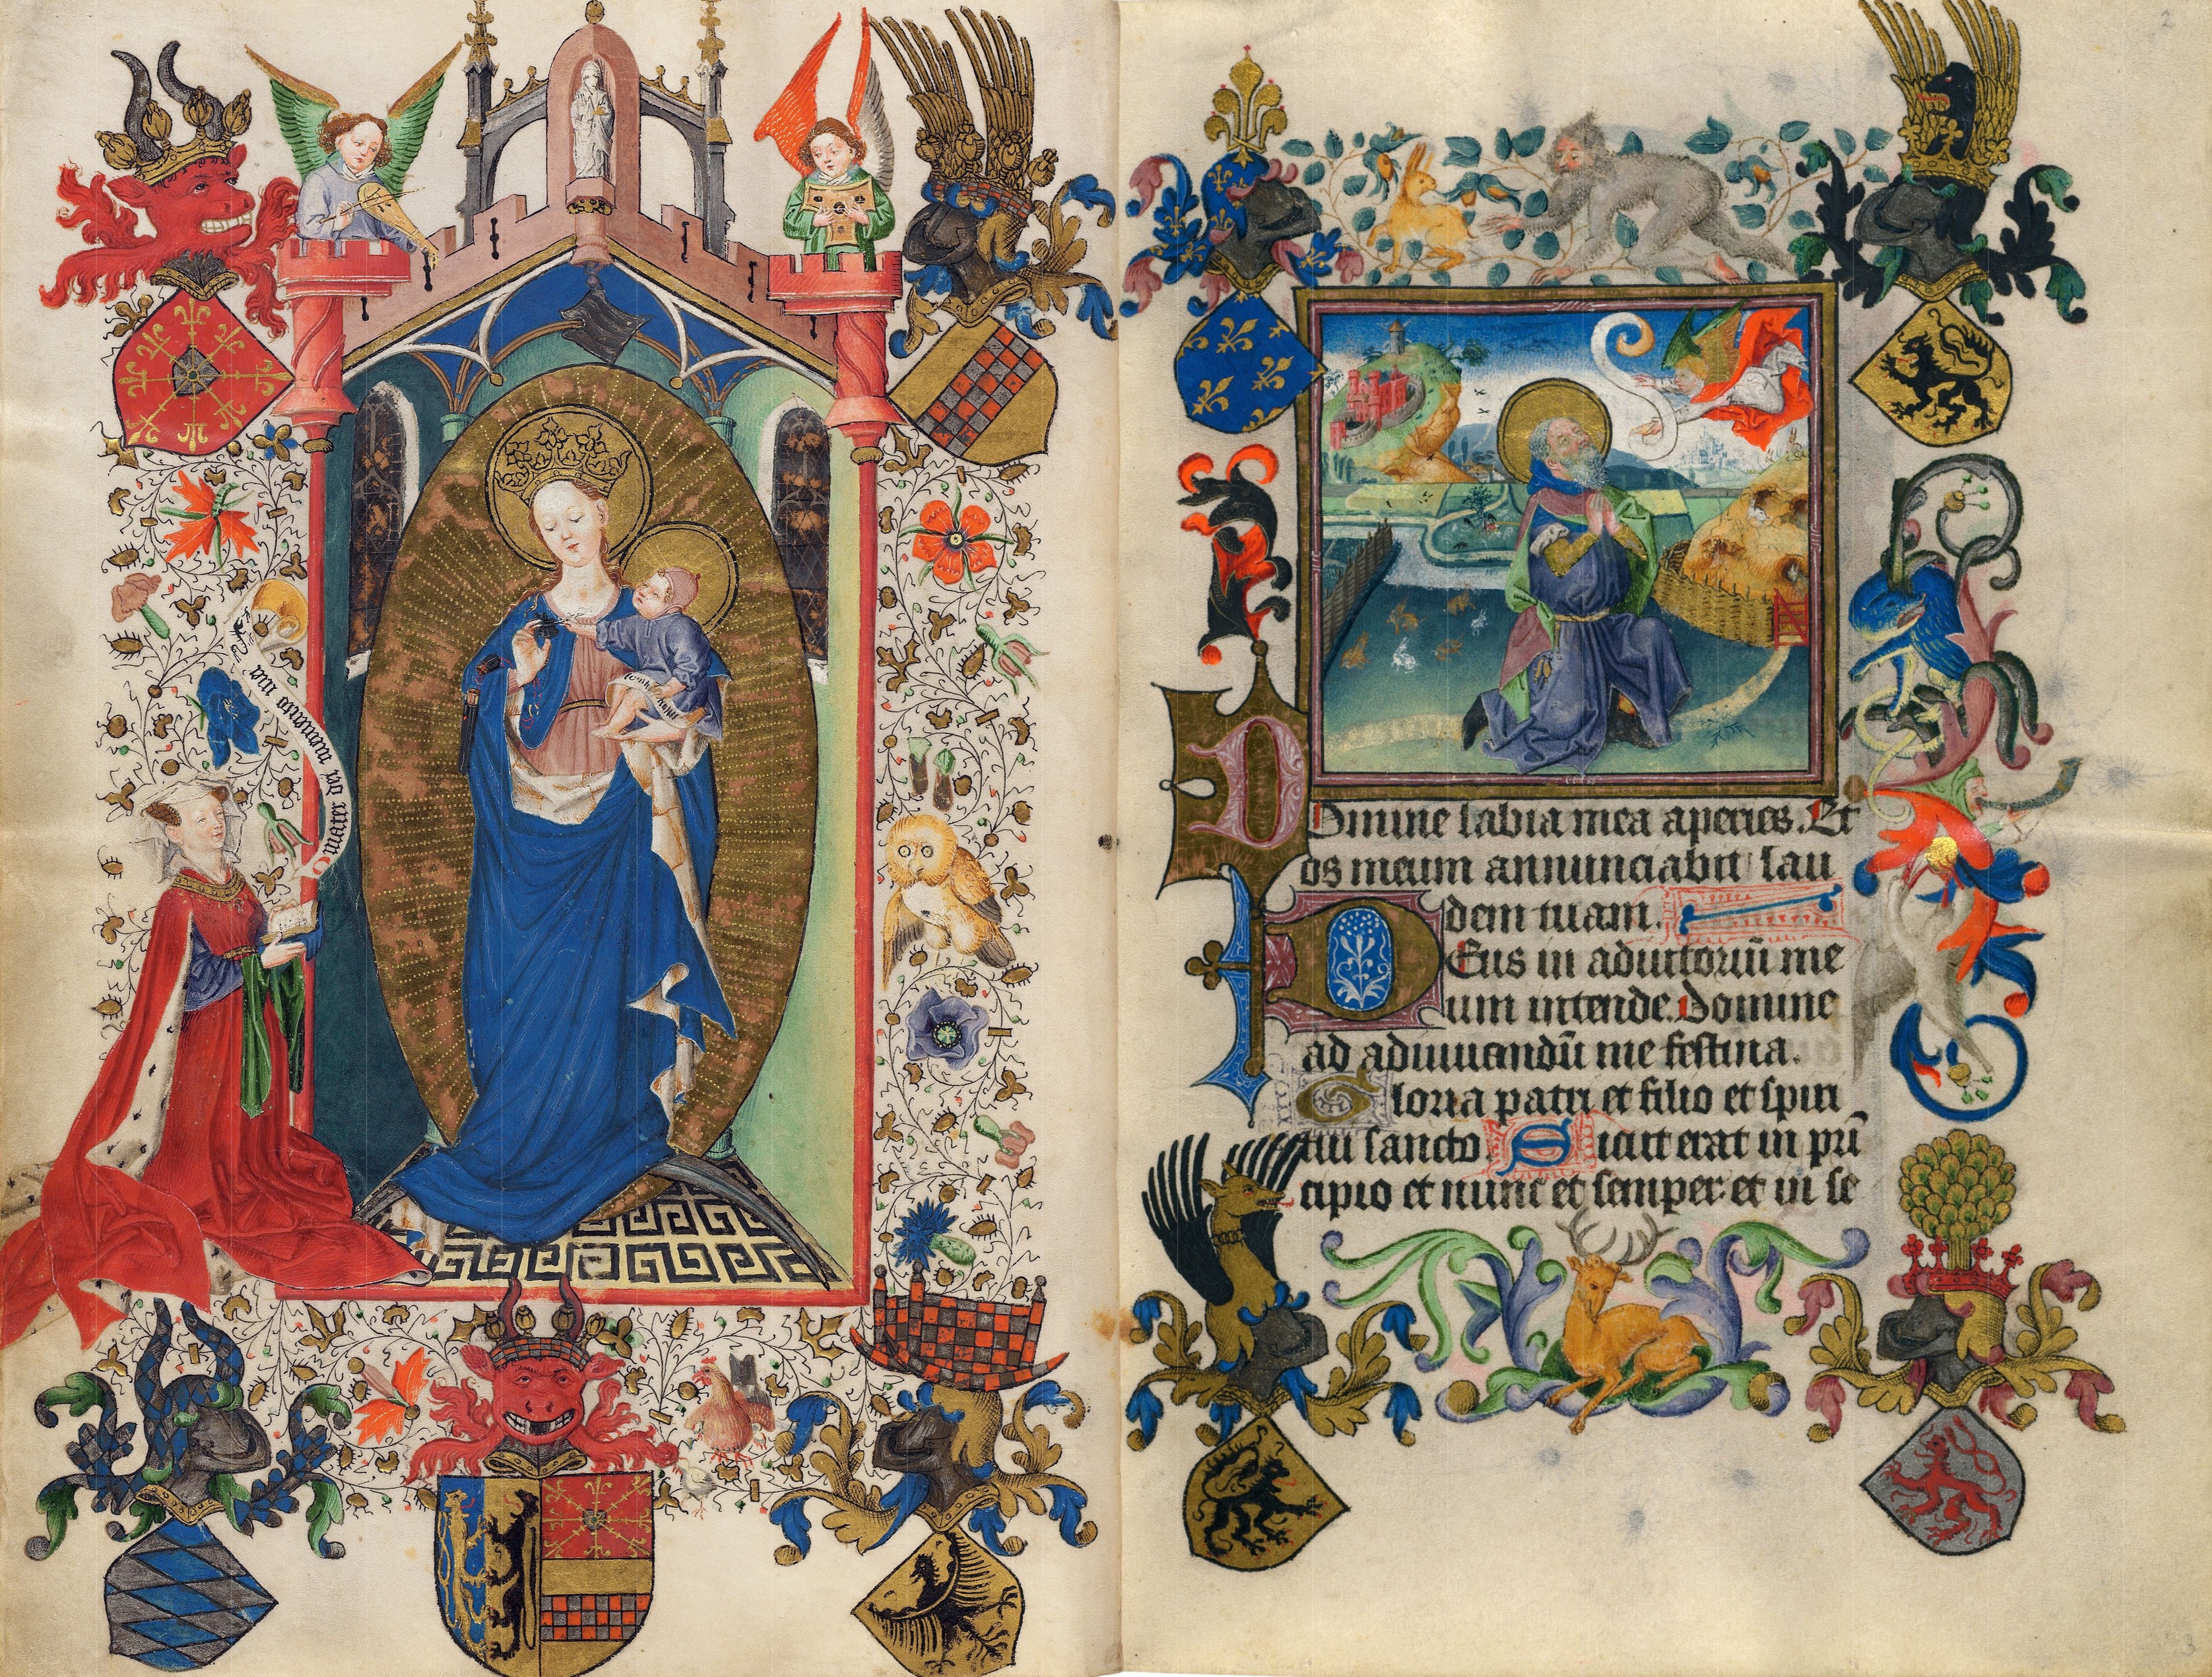 O mater dei memento mei
Domine labia mea aperies. Et
os meum annunciabit lau
dem tuam.
Deus in adiutoriū me
um intende. Domine
ad adiuuandū me festina.
Gloria patri et filio et spiri
tui sancto. Sicut erat in prī
cipio et nunc et semper: et in se
2
3